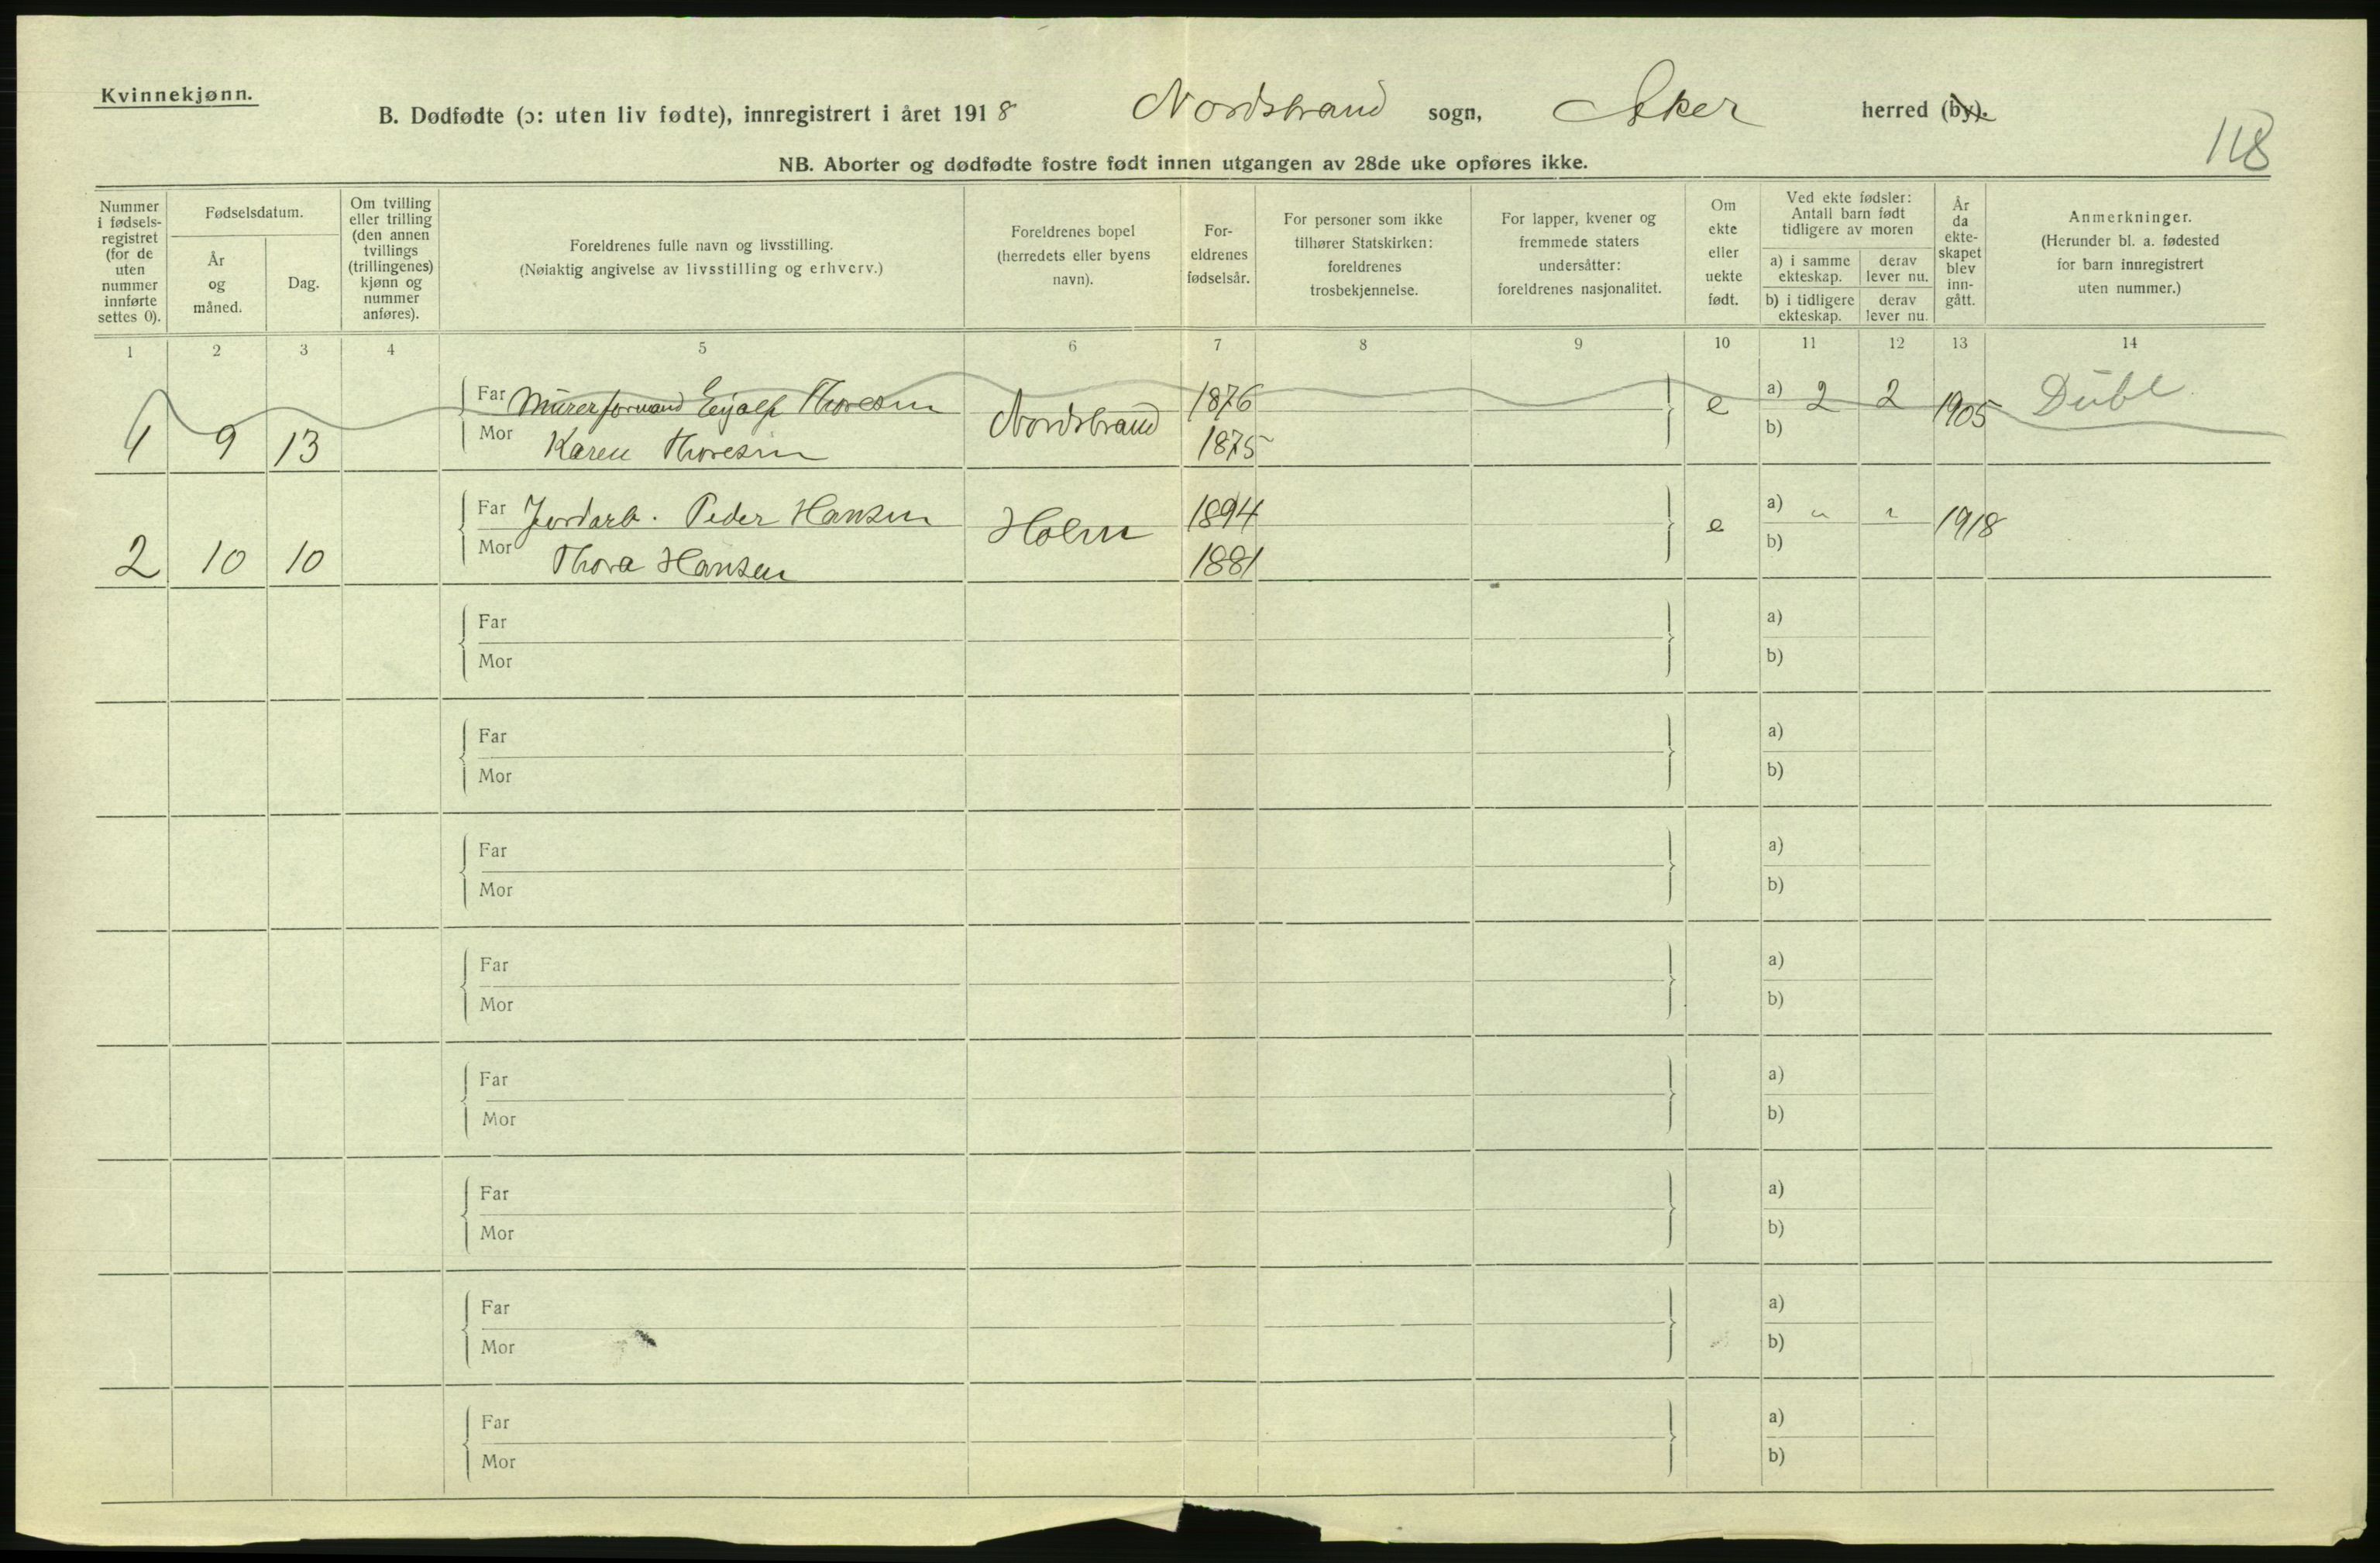 Kvinnekjønn.
B. Dødfødte (ɔ: uten liv fødte), innregistrert i året 1918 Nordstrand sogn, Aker herred (by).
118
NB. Aborter og dødfødte fostre født innen utgangen av 28de uke opføres ikke.
Nummer
i fødsels-
registret
(for de
uten
nummer
innførte
settes 0).
Fødselsdatum.
År
og
måned.
Dag.
Om tvilling
eller trilling
(den annen
tvillings
(trillingenes)
kjønn og
nummer
anføres).
Foreldrenes fulle navn og livsstilling.
(Nøiaktig angivelse av livsstilling og erhverv.)
Foreldrenes bopel
(herredets eller byens
navn).
For-
eldrenes
fødselsår.
For personer som ikke
tilhører Statskirken:
foreldrenes
trosbekjennelse.
For lapper, kvener og
fremmede staters
undersåtter:
foreldrenes nasjonalitet.
Om
ekte
eller
uekte
født.
Ved ekte fødsler:
Antall barn født
tidligere av moren
a) i samme
ekteskap.
derav
lever nu.
b) i tidligere
ekteskap.
derav
lever nu.
År
da
ekte-
skapet
blev
inn-
gått.
Anmerkninger.
(Herunder bl. a. fødested
for barn innregistrert
uten nummer.)
1 2 3 4 5 6 7 8 9 10 11 12 13 14
Far Murerformand Eyjolf Thoresen 1876 a) 2 2
1 9 13 Nordstrand e 1905 Dubl.
Mor Karen Thoresen 1875 b)
Far Jordarb. Peder Hansen 1894 a) " "
2 10 10 Holm e 1918
Mor Thora Hansen 1881 b)
Far a)
Mor b)
Far a)
Mor b)
Far a)
Mor b)
Far a)
Mor b)
Far a)
Mor b)
Far a)
Mor b)
Far a)
Mor b)
Far a)
Mor b)